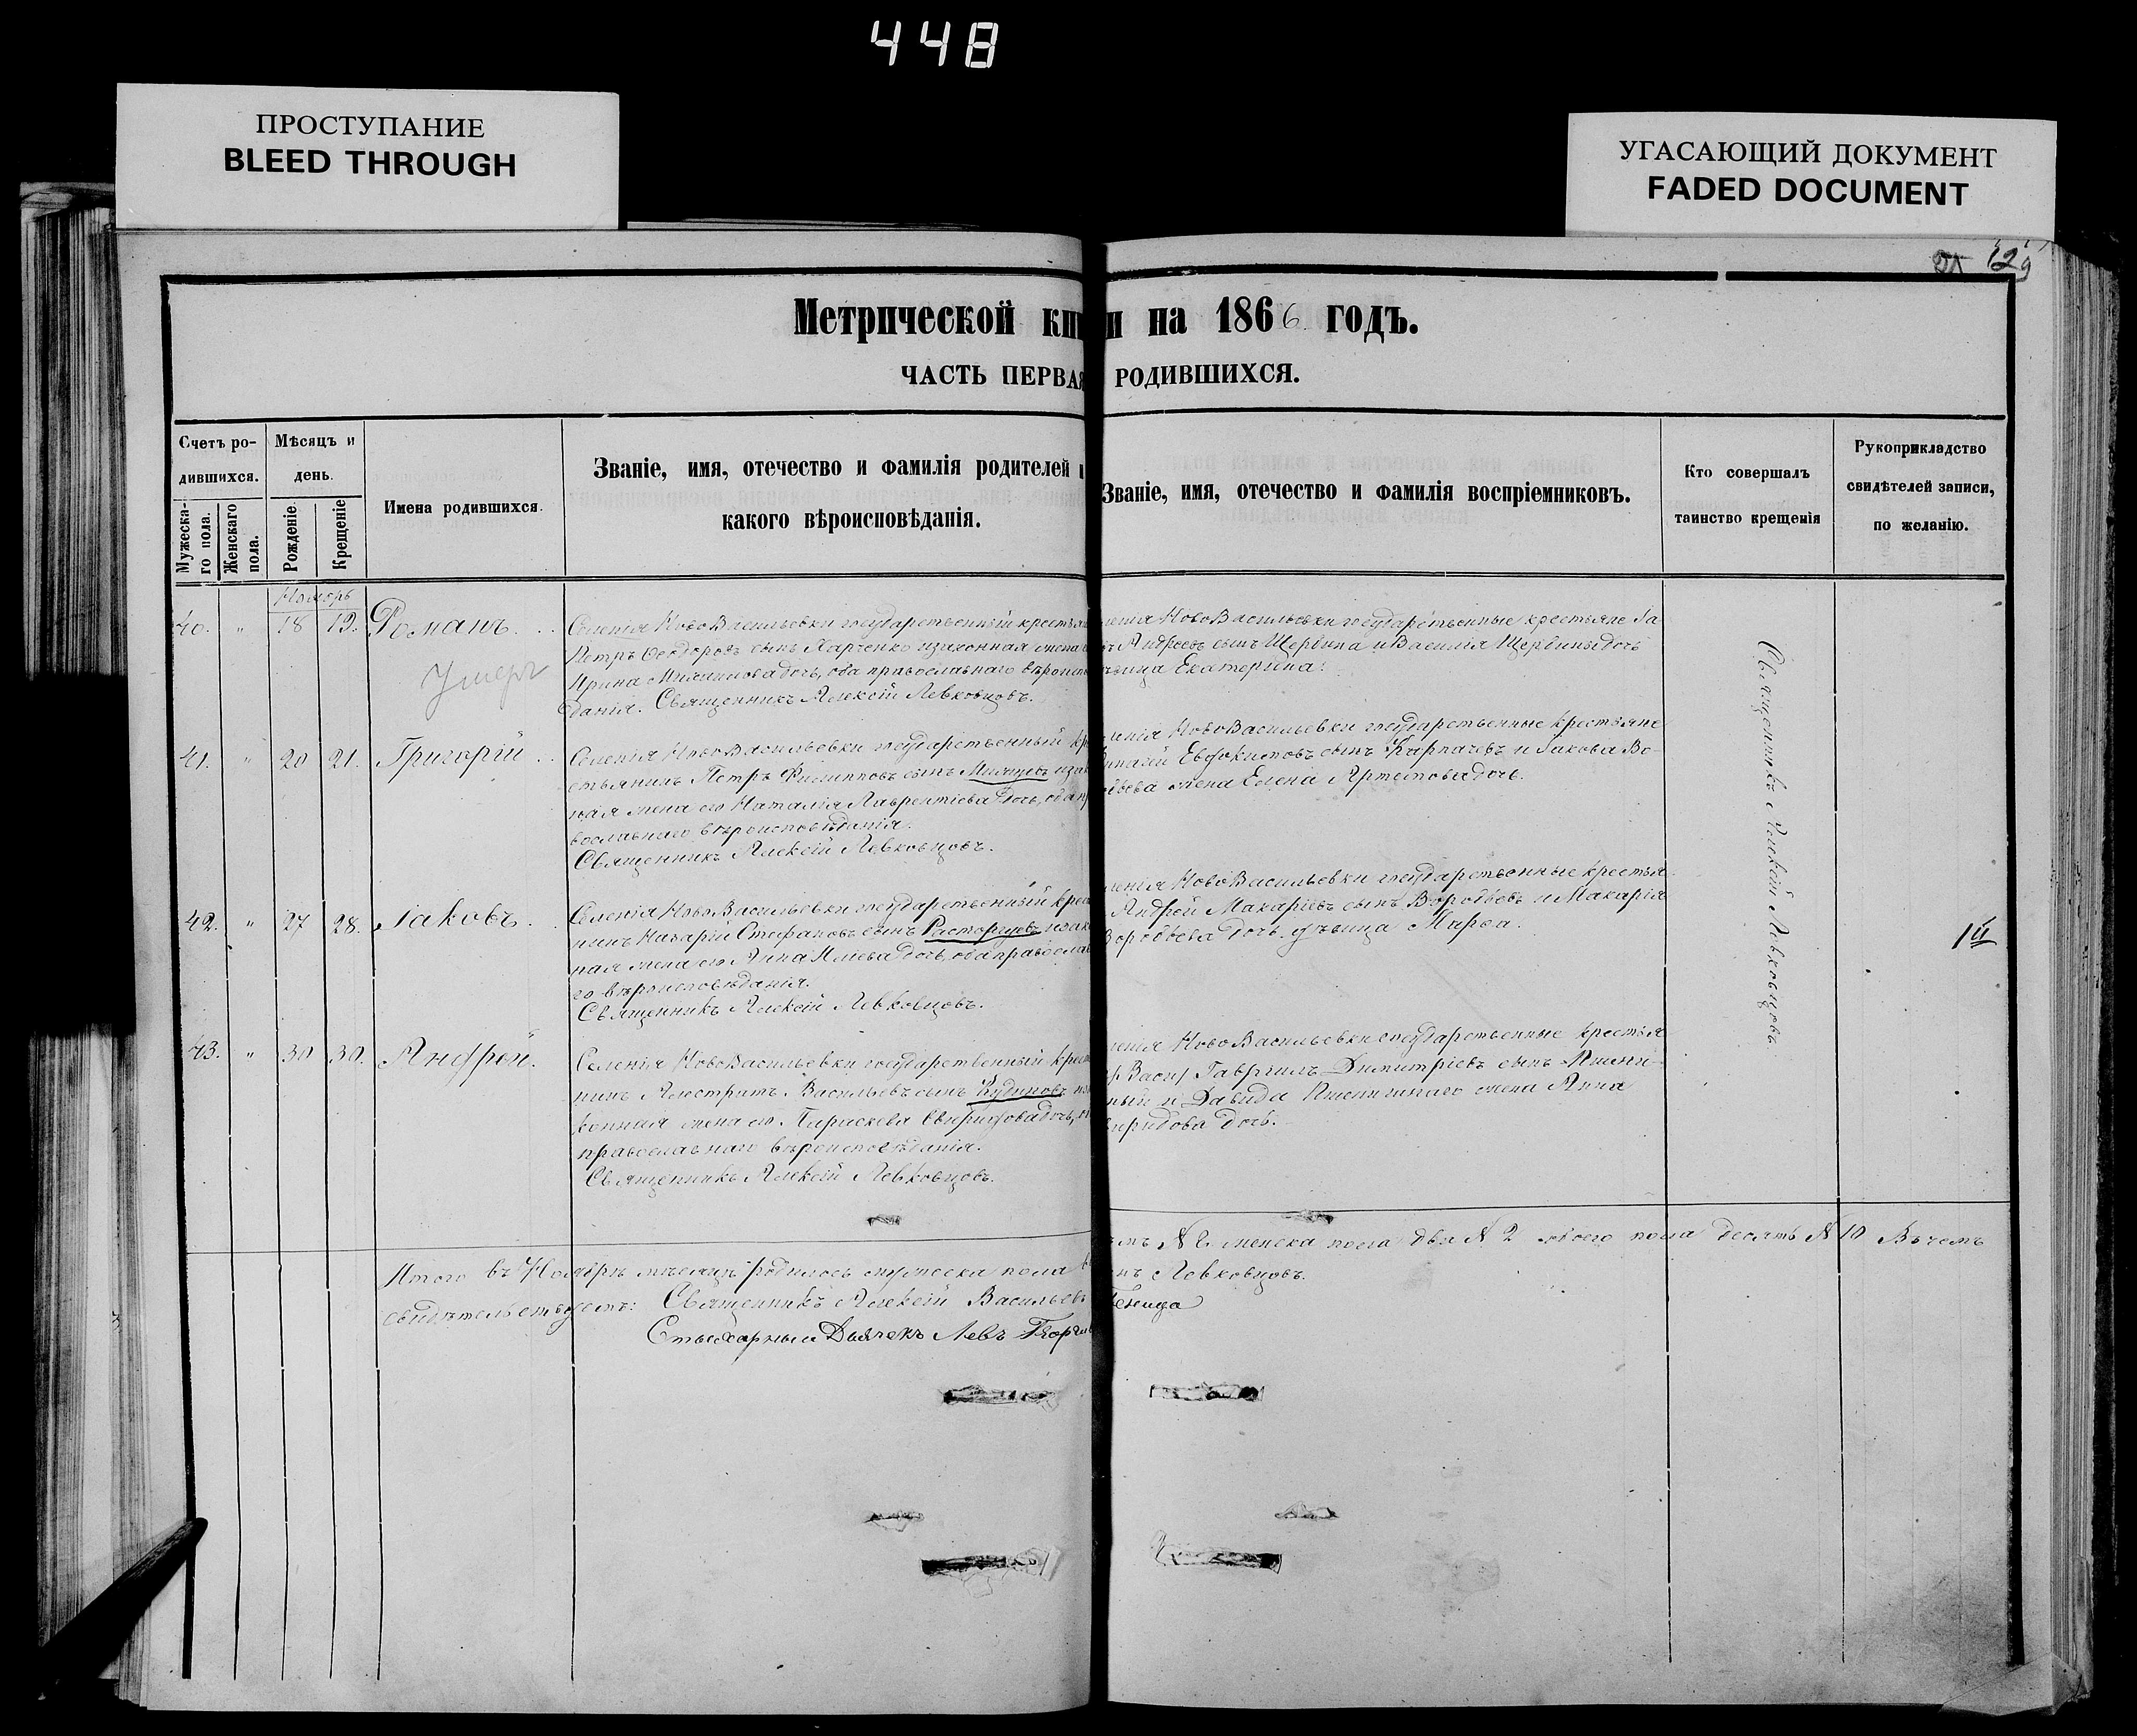 448
ПРОСТУПАНИЕ
BLEED THROUGH
УГАСАЮЩИЙ ДОКУМЕНТ
FADED DOCUMENT
129
Метрической кни и на 1866 годъ.
ЧАСТЬ ПЕРВАЯ РОДИВШИХСЯ.
Счетъ ро-
дившихся.
Мужеска-
го пола.
Женскаго
пола.
Мѣсяцъ и
день.
Рожденіе.
Крещеніе
Имена родившихся.
Званіе, имя, отечество и фамилія родителей и
какого вѣроисповѣданія.
Званіе, имя, отечество и фамилія воспріемниковъ.
Кто совершалъ
таинство крещенія
Рукоприкладство
свидѣтелей записи,
по желанію.
Ноябрь
40. " 18 19. Романъ.
Умеръ
Селенія НовоВасильевки государственный крестья
Петръ Ѳеодоровъ сынъ Харченко изаконная жена е
Ирина Михаилова дочь, оба православнаго вѣроиспо
данія. Священникъ Алексій Левковцовъ.
ленія НовоВасильевки государственные крестьяне Га
Андреевъ сынъ Щербина и Василія Щербины дочь
вица Екатерина.
41. " 20 21. Григорій
Селенія НовоВасильевки государственный кре
стьянинъ Петръ Филипповъ сынъ изак
ная жена его Наталія Лаврентіева дочь, оба пр
вославнаго вѣроисповѣданія.
Священникъ Алексій Левковцовъ.
ленія НовоВасильевки государственные крестьяне
Евфокистовъ сынъ Карпачевъ и Іакова Во-
бьева жена Елена Артемова дочь.
42. " 27 28. Іаковъ.
Селенія НовоВасильевки государственный крес
нинъ Назарій Стефановъ сынъ Расторгуевъ изакон
ная жена его Анна Иліева дочь, оба православ
го вѣроисповѣданія.
Священникъ Алексій Левковцовъ.
ленія НовоВасильевки государственные крестья
Андрей Макаріевъ сынъ Воробьевъ и Макарія
Воробьева дочь дѣвица Марѳа.
43. " 30 30. Андрей.
Селенія НовоВасильевки государственный крест
нинъ Васильевъ сынъ Кудиновъ иза
конная жена его Параскева Свиридова дочь, о
православнаго вѣроисповѣданія.
Священникъ Алексій Левковцовъ.
ленія НовоВасильевки государственные крестья
Гавріилъ Димитріевъ сынъ Пшени-
ный и Давида Пшеничнаго жена Анна
виридова дочь.
Священникъ Алексій Левковцовъ.
Итого въ Ноябрѣ мѣсяцѣ родилось мужеска пола во
женска пола два N 2 обоего пола десять N 10 Въ чемъ
свидѣтельствуемъ: Священникъ Алексій Васильевъ
Левковцовъ.
Дьячекъ Левъ Георгіев